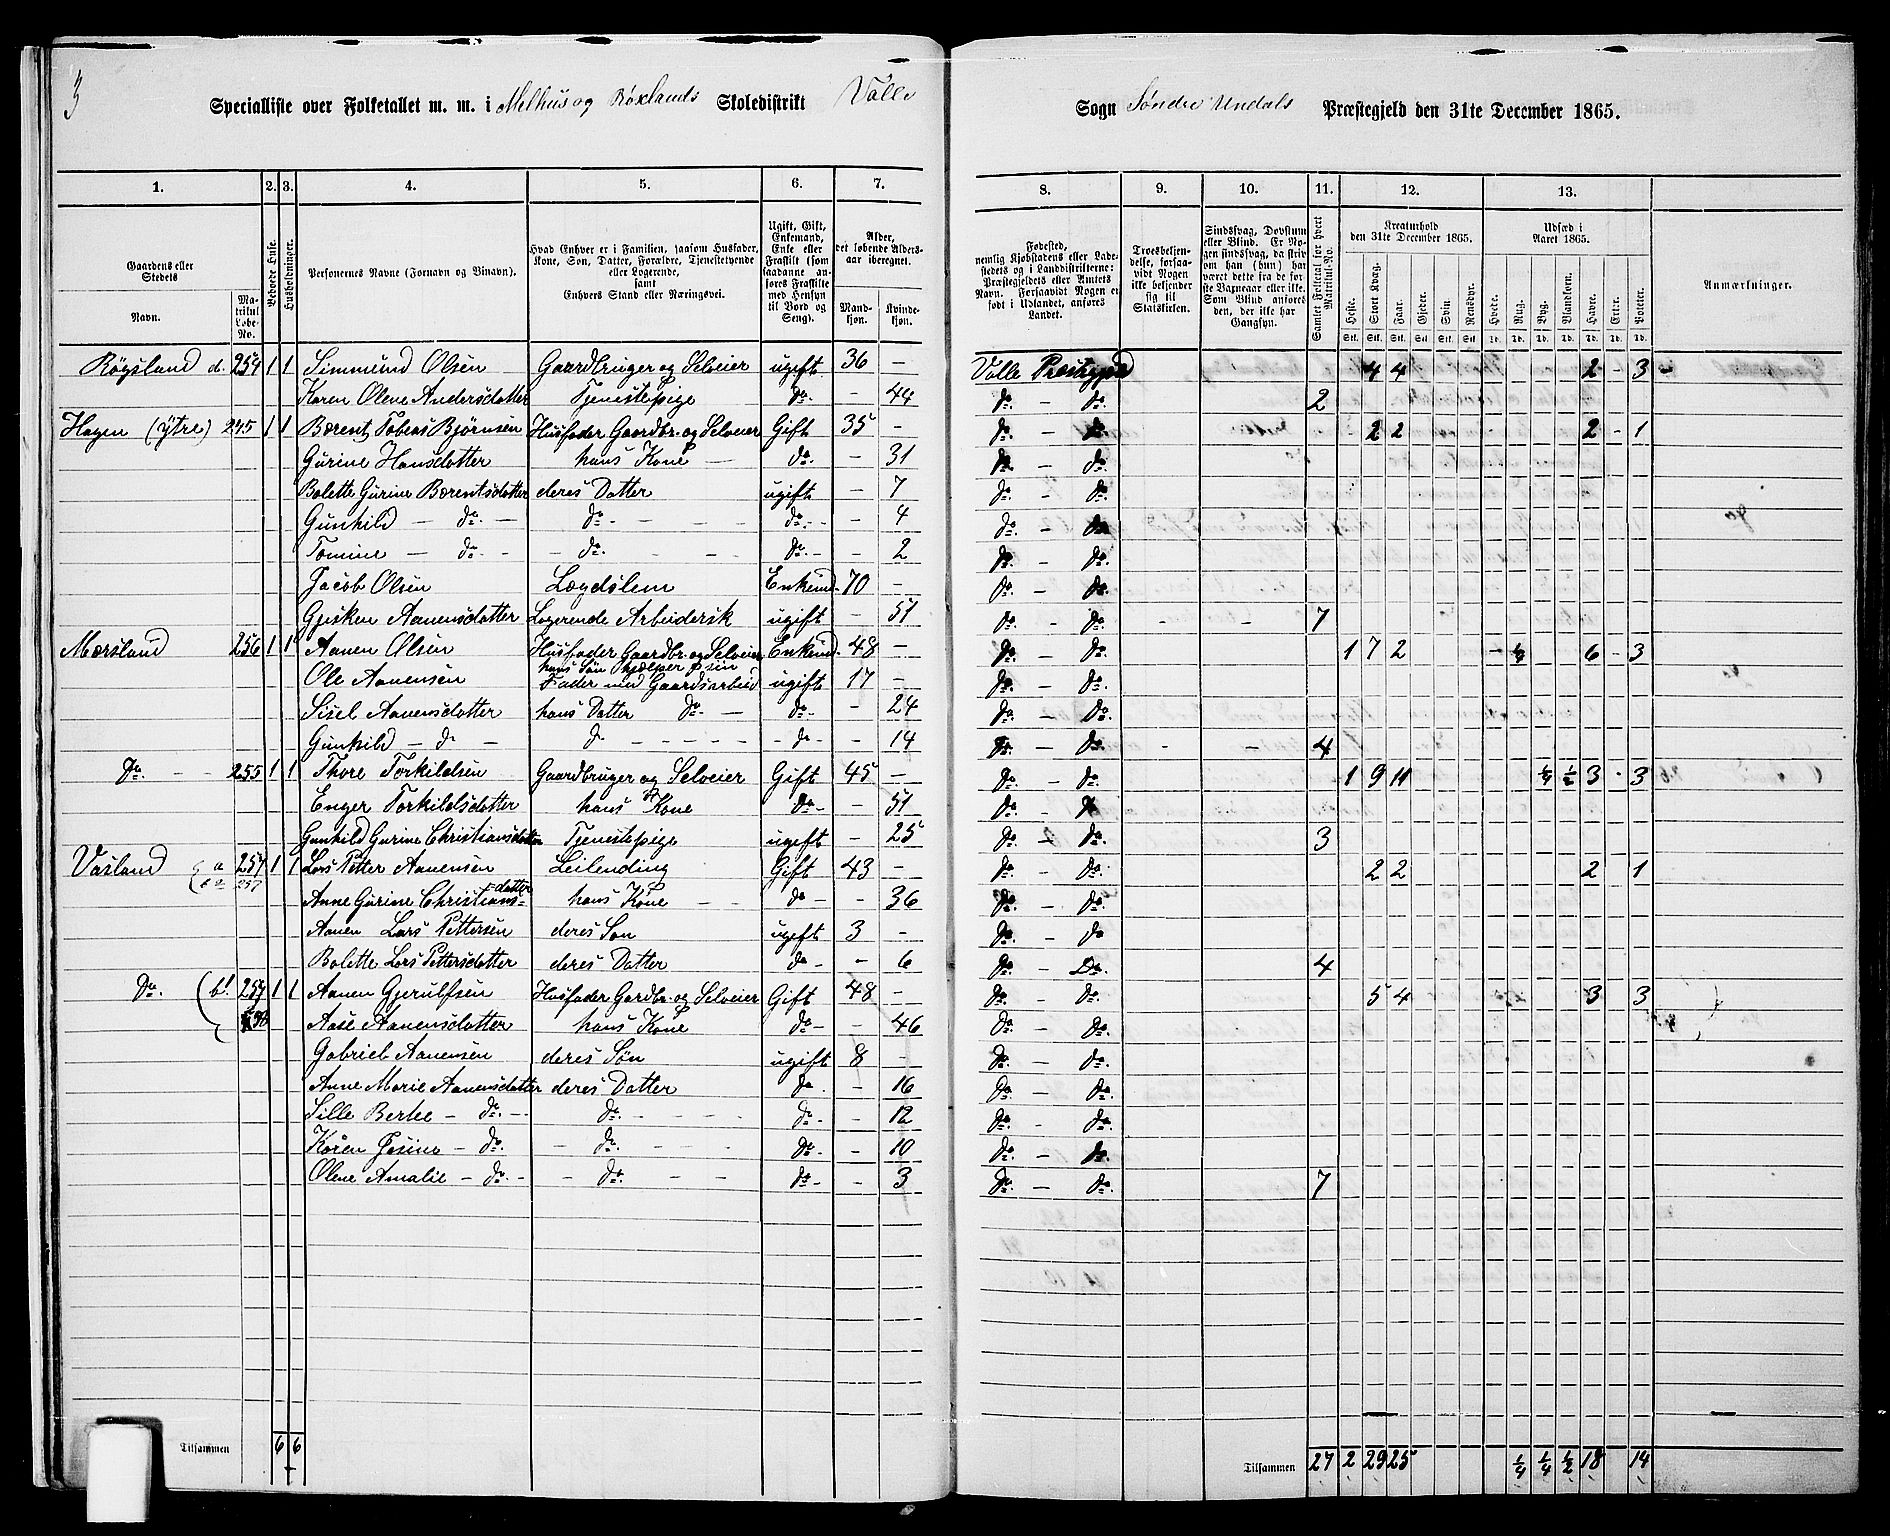 3
Specialliste over Folketallet m. m. i Melhus og Røxlands Skoledistrikt Valle
Sogn Søndre Undals Præstegjeld den 31te December 1865.
1. 2. 3. 4. 5. 6. 7.
8. 9. 10. 11. 12. 13.
Gaardens eller Stedets
Navn.
Matrikul Løbe-No.
Beboede Huse.
Husholdninger.
Personernes Navne (Fornavn og Binavn).
Hvad Enhver er i Familien, saasom Husfader, Kone, Søn, Datter, Forældre, Tjenestetyende eller Logerende, samt Enhvers Stand eller Næringsvei.
Ugift, Gift, Enkemand, Enke eller Fraskilt (som saadanne anføres Fraskilte med Hensyn til Bord og Seng).
Alder, det løbende Alders-aar iberegnet.
Mandkjøn. Kvindekjøn.
Fødested, nemlig Kjøbstadens eller Ladestedets og i Landdistrikterne: Præstegjeldets eller Amtets Navn. Forsaavidt Nogen er født i Udlandet, anføres Landet.
Troesbekjendelse, forsaavidt Nogen ikke bekjender sig til Statskirken.
Sindssvag, Døvstum eller Blind. Er Nogen sindssvag, da skrives om han (hun) har været dette fra de første Barneaar eller ikke. Som Blind anføres den, der ikke har Gangsyn.
Samlet Folketal for hvert Matrikul-No.
Kreaturhold den 31te December 1865.
Heste. Stort Kvæg. Faar. Gjeder. Svin. Rensdyr.
Udsæd i Aaret 1865.
Hvede. Rug. Byg. Blandkorn. Havre. Erter. Poteter.
Anmærkninger.
Røysland d. 254 1 1 Simmund Olsen Gaardbruger og Selveier ugift 36 - Valle Præstegjeld 4 4 2 - 3
Karen Olene Andersdatter Tjenestepige do - 44 do - do 2
Hagen (ytre) 245 1 1 Bærent Tobias Bjørnsen Husfader Gaardbr. og Selveier Gift 35 - do - do 2 2 2 - 1
Gurine Hansdatter hans Kone - do - 31 do - do
Bolette Gurine Bærentsdatter deres Datter ugift - 7 do - do
Gunhild - do - do - do - 4 do - do
Tomine - do - do - do - 2 do - do
Jacob Olsen Lægdslem Enkemd 70 - do - do
Gjesken Aanensdatter Logerende Arbeidersk ugift - 51 do - do 7
Mærsland 256 1 1 Aanen Olsen Husfader Gaardbr. og Selveier Enkemd 48 - do - do 1 7 2 - 1/4 6 - 3
Ole Aanensen hans Søn hjælper sin Fader med Gaardsarbeid ugift 17 - do - do
Sisel Aanensdatter hans Datter do - do - 24 do - do
Gunhild - do - do - do - 14 do - do 4
do 255 1 1 Thore Torkildsen Gaardbruger og Selveier Gift 45 - do - do 1 9 11 1/4 1/2 3 - 3
Enger Torkildsdatter hans Kone do - 51 do - do
Gunhild Gurine Christiansdatter Tjenestepige ugift - 25 do - do 3
Vasland a 257 1 1 Lars Petter Aanensen Leilending Gift 43 - do - do 2 2 2 1
257
Anne Gurine Christiansdatter hans Kone do - 36 do - do
Aanen Lars Pettersen deres Søn ugift 3 - do - do
Bolette Lars Pettersdatter deres Datter do - 6 do - Do 4
do b. 257 1 1 Aanen Gjerulfsen Husfader Gardbr. og Selveier Gift - 48 - do - do 5 4 3 3
Aase Aanensdatter hans Kone do - 46 do - do
Gabriel Aanensen deres Søn ugift 8 - do - do
Anne Marie Aanensdatter deres Datter do - 16 do - do
Sille Berte - do - do - do - 12 do - do
Karen Josine - do - do - do - 10 do - do
Olene Amalie - do - do - do - 3 do - do 7
Tilsammen 6 6
Tilsammen 27 2 29 25 1/4 1/4 1/2 18 14